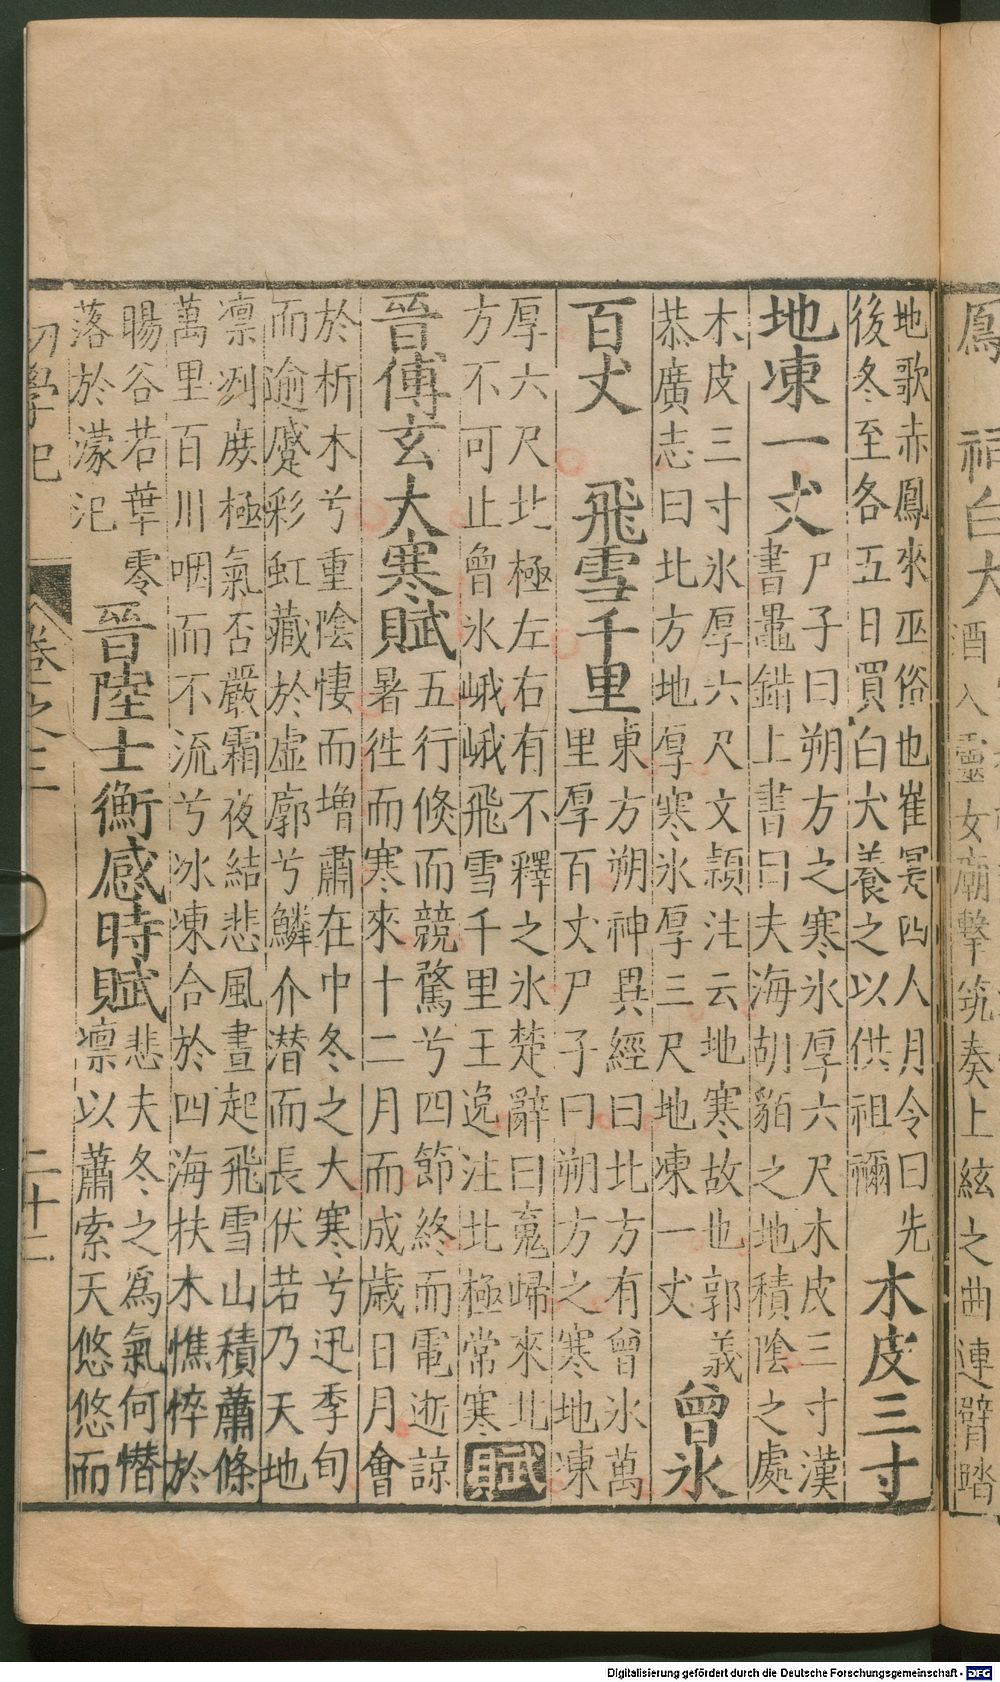 鳳
祠白犬
酒入靈女廟擊筑奏上絃之曲連臂踏
地歌赤鳳來巫俗也崔寔四人月令曰先
後冬至各五日買白犬養之以供祖禰
木皮三寸
地凍一丈
尸子曰朔方之寒氷厚六尺木皮三寸漢
書鼂錯上書曰夫海胡貉之地積陰之處
木皮三寸氷厚六尺文頴注云地寒故也郭義
恭廣志曰北方地厚寒氷厚三尺地凍一丈
曾氷
百丈
飛雪千里
東方朔神異經曰北方有曾氷萬
里厚百丈尸子曰朔方之寒地凍
厚六尺北極左右有不釋之氷楚辭曰䰟歸來北
方不可止曾氷峨峨飛雪千里王逸注北極常寒
賦
晉傅玄大寒賦
五行倏而競騖兮四節終而電逝諒
暑徃而寒來十二月而成歲日月會
於析木兮重陰悽而增肅在中冬之大寒兮迅季旬
而逾蹙彩虹藏於虛廓兮鱗介潛而長伏若乃天地
凛冽庻極氣否嚴霜夜結悲風晝起飛雪山積蕭條
萬里百川咽而不流兮冰凍合於四海扶木憔悴於
暘谷若華零
落於濛汜
晉陸士衡感時賦
悲夫冬之爲氣何憯
凛以蕭索天悠悠而
初學記
卷之三
二十二
Digitalisierung gefördert durch die Deutsche Forschungsgemeinschaft - DFG